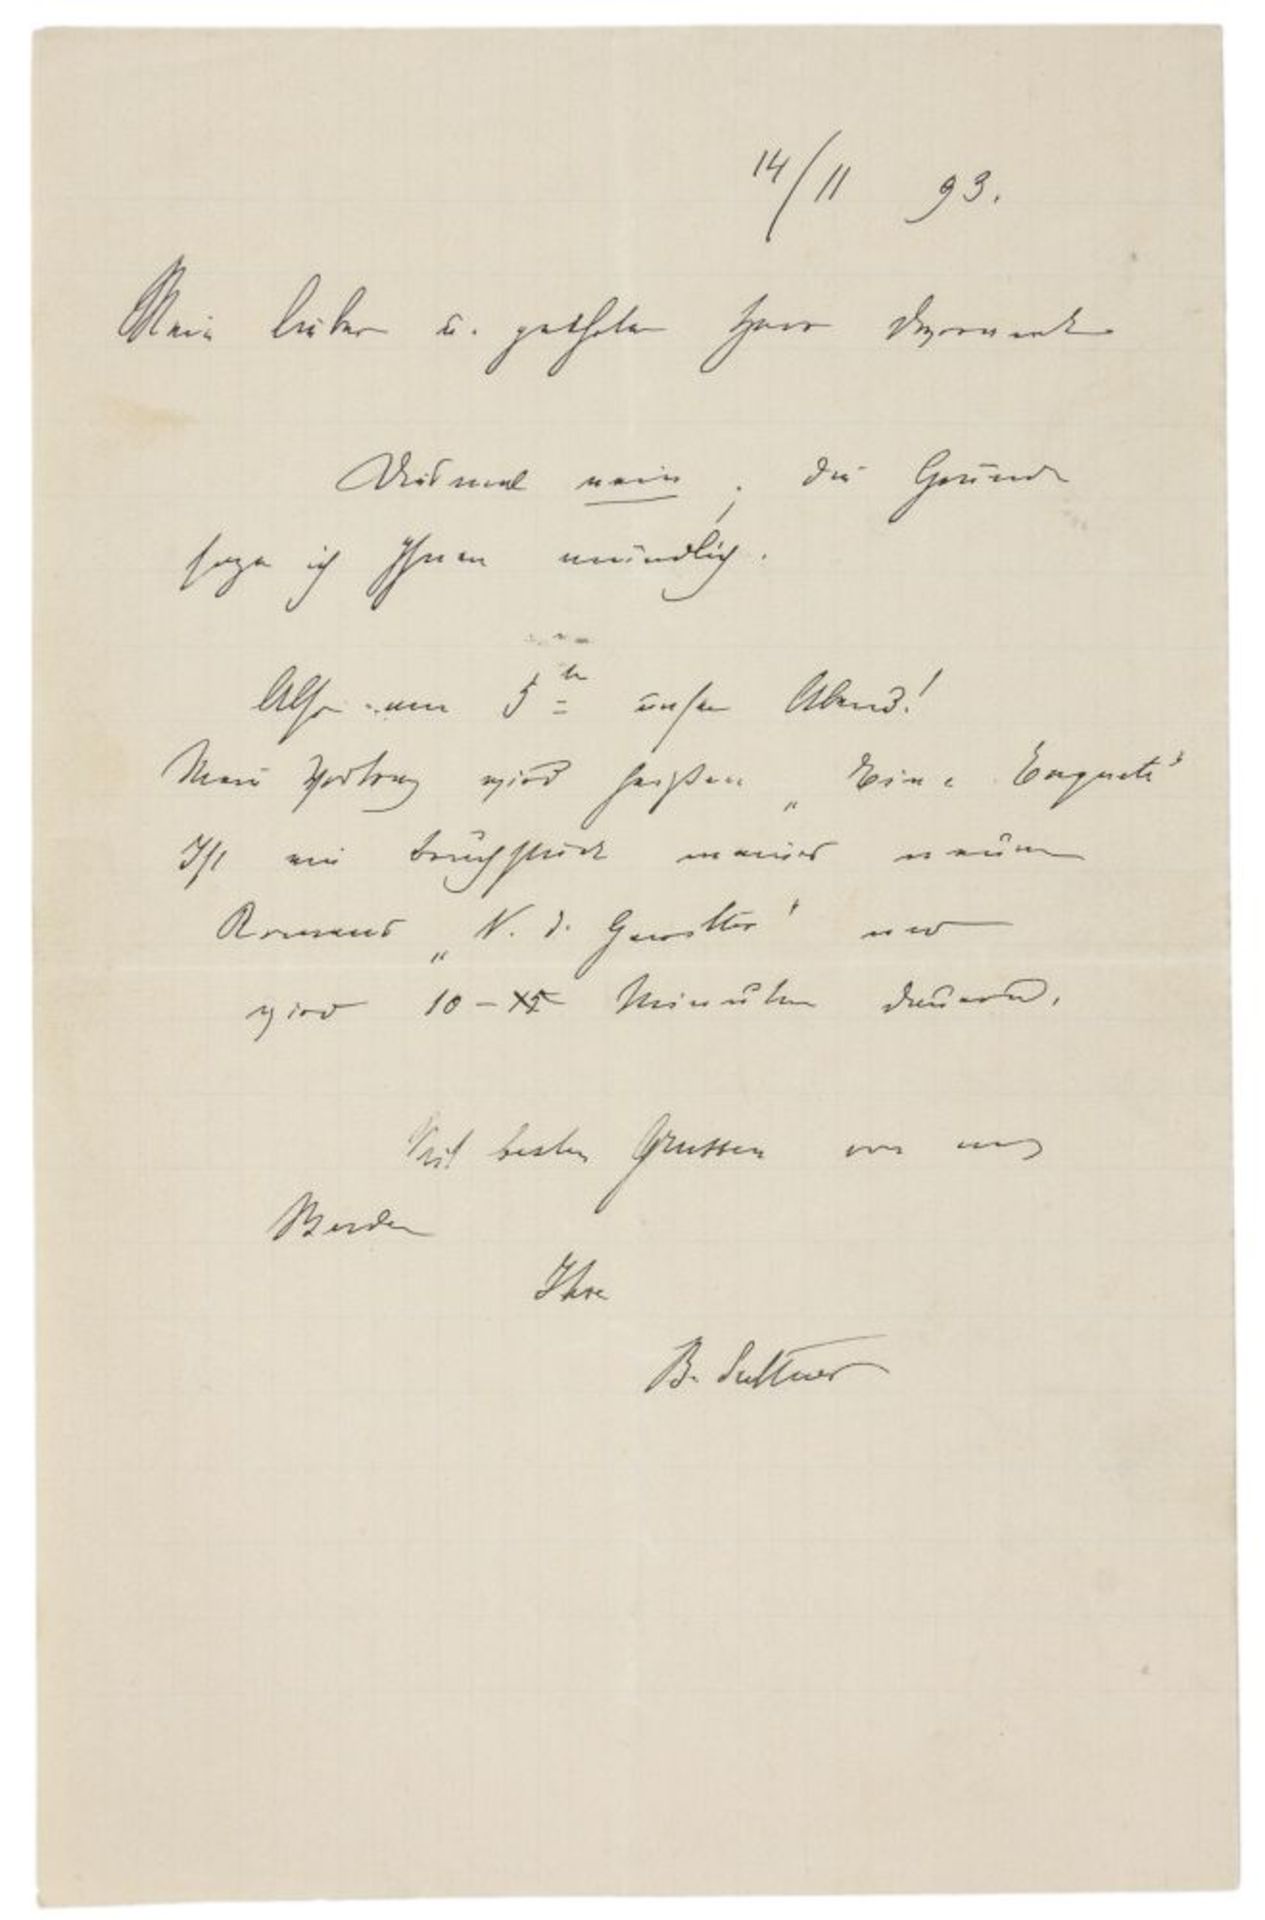 14/11 93.
Mein lieber u. geehrter Herr
Diesmal nein; die Gründe
sage ich Ihnen mündlich.
Also am 5ten unser Abend!
Mein Vortrag wird heißen „Eine Enquete"
Ist ein Bruchstück meines neuen
Romans „V. d. Gewitter" und
wird 10 – 15 Minuten dauern.
Mit besten Grüssen von uns
Beiden
Ihre
B. Suttner